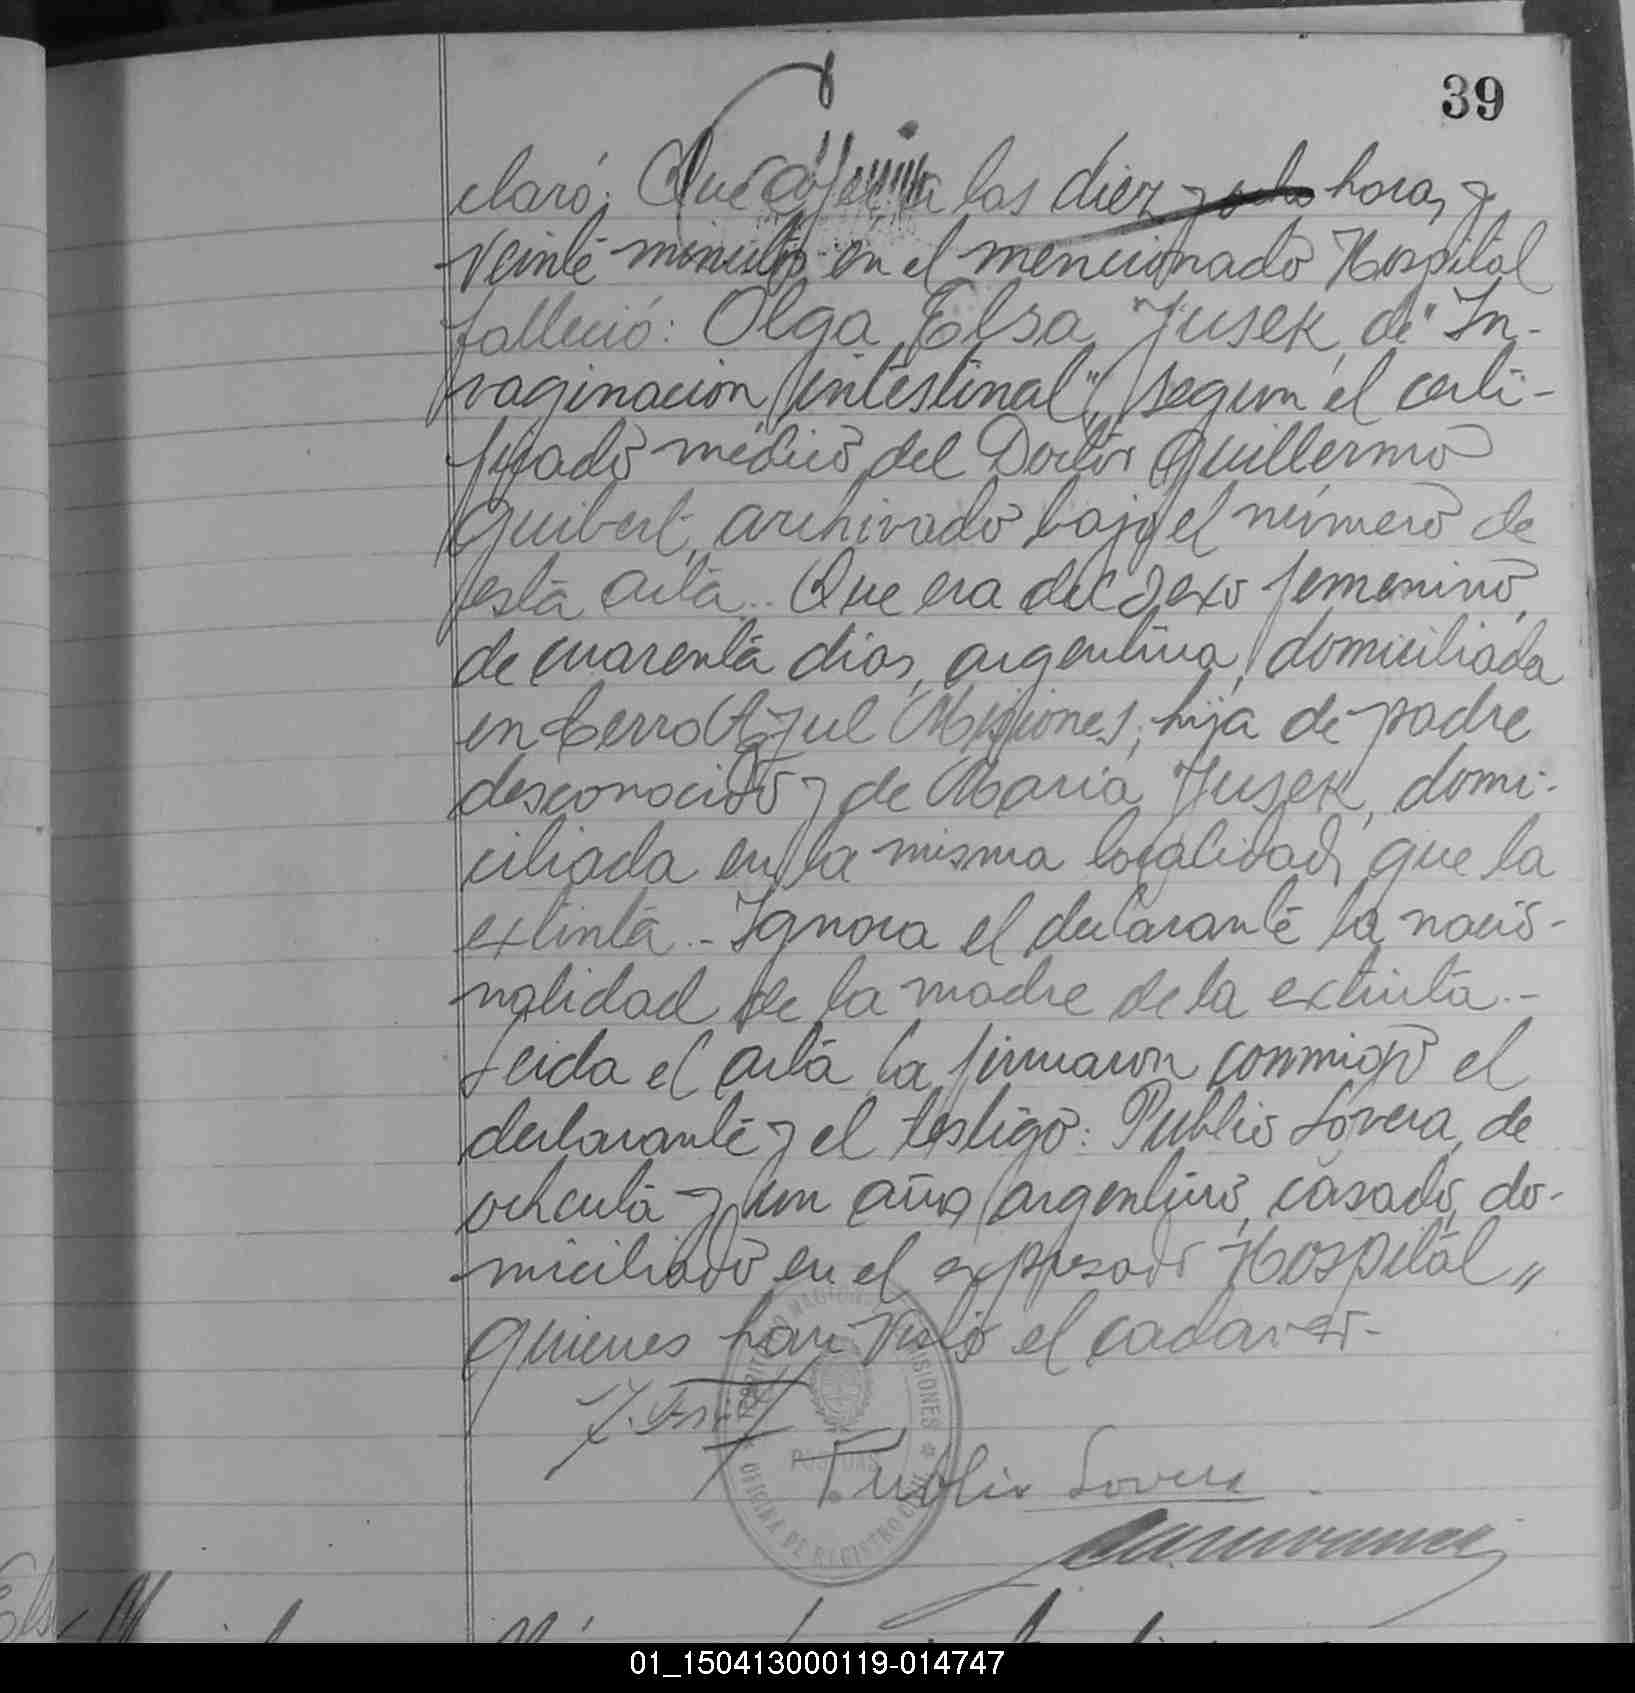 39
claró: Que a las diez y ocho horas y
veinte minutos en el mencionado Hospital
falleció: Olga Elsa Jusek, de "In-
vaginacion intestinal", segun el certi-
ficado médico del Doctor Guillermo
Guibert, archivado bajo el número de
esta acta.. Que era del sexo femenino,
de cuarenta dias, argentina, domiciliada
en Cerro Azul Misiones; hija de padre
desconocido y de Maria Jusek, domi-
ciliada en la misma localidad que la
extinta.- Ignora el declarante la nacio-
nalidad de la madre de la extinta.-
Leida el acta la firmaron conmigo el
declarante y el testigo: Publio Lovera, de
años argentino, casado, do-
miciliado en el expresado Hospital,,
quienes han visto el cadaver.-
Publio Lovera
MISIONES
POSADAS
OFICINA DE REGISTRO CIVIL
01_150413000119-014747